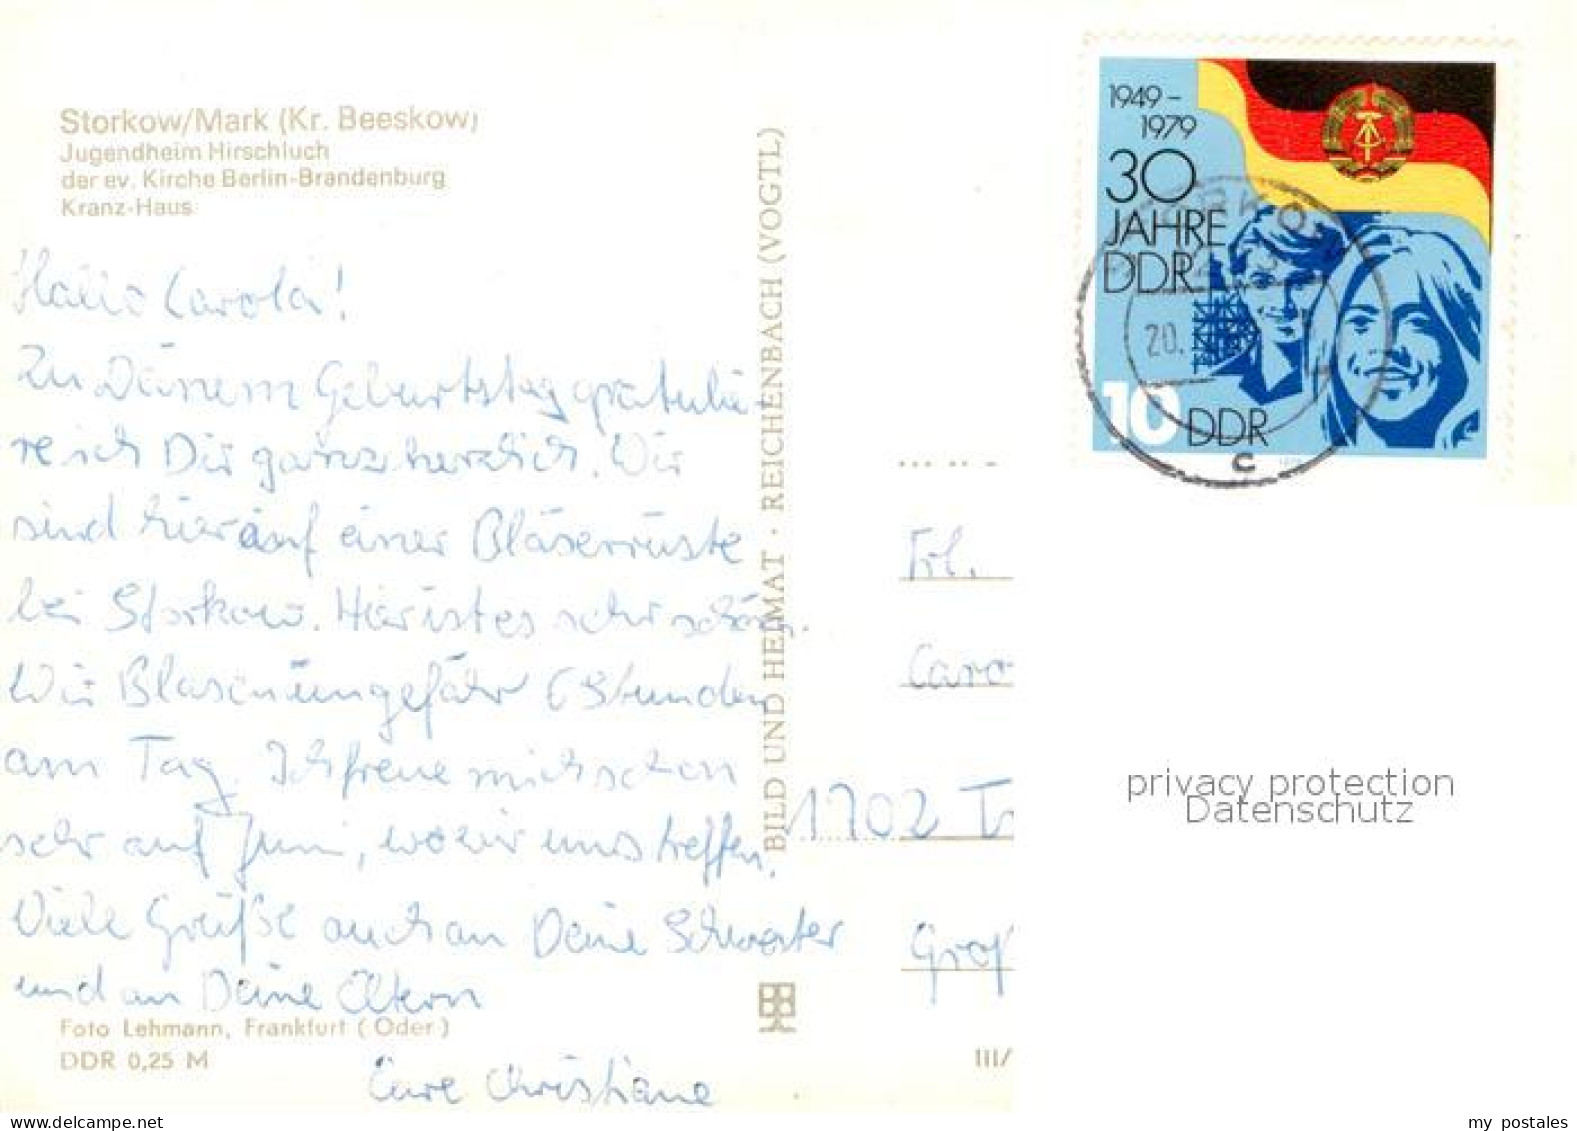 Storkow/Mark (Kr. Beeskow)
Jugendheim Hirschluch
der ev. Kirche Berlin-Brandenburg
Kranz-Haus
Hallo Carola!
Zu Deinem Geburtstag gratulie-
re ich Dir ganz herzlich. Wir
sind hier auf einer Bläserrüste
bei Storkow. Hier ist es sehr schön.
Wir Blasen ungefähr 6 Stunden
am Tag. Ich freue mich schon
sehr auf Juni, wo wir uns treffen.
Viele Grüße auch an Deine Schwester
und an Deine Eltern
Foto Lehmann, Frankfurt (Oder)
DDR 0,25 M
Eure Christiane
BILD UND HEIMAT · REICHENBACH (VOGTL)
III/
1949–
1979
30
JAHRE
DDR
10 DDR
20.
c
Frl.
Caro
1702 T
Groß
privacy protection
Datenschutz
my postales